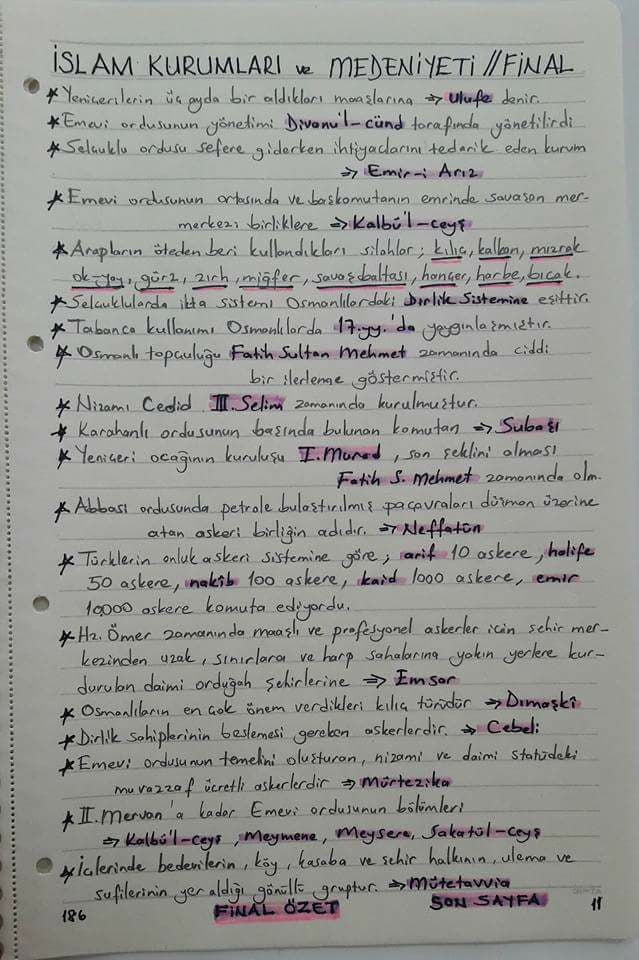 İSLAM KURUMLARI ve MEDENİYETİ // FİNAL
* Yeniçerilerin üç ayda bir aldıkları maaşlarına ⇒ Ulufe denir.
* Emevi ordusunun yönetimi Divanu'l-cünd tarafında yönetilirdi
* Selçuklu ordusu sefere giderken ihtiyaçlarını tedarik eden kurum
⇒ Emir-i Arız
* Emevi ordusunun ortasında ve başkomutanın emrinde savaşan mer-
merkezi birliklere ⇒ Kalbü'l-ceyş
* Arapların öteden beri kullandıkları silahlar; kılıç, kalkan, mızrak
ok-yay, gürz, zırh, miğfer, savaş baltası, hançer, harbe, bıçak.
* Selçuklularda ikta sistemi Osmanlılardaki Dirlik Sistemine eşittir.
* Tabanca kullanımı Osmanlılarda 17.yy.'da yaygınlaşmıştır.
* Osmanlı topçuluğu Fatih Sultan Mehmet zamanında ciddi
bir ilerleme göstermiştir.
* Nizamı Cedid III. Selim zamanında kurulmuştur.
* Karahanlı ordusunun başında bulunan komutan ⇒ Subaşı
* Yeniçeri ocağının kuruluşu I. Murad, son şeklini alması
Fatih S. Mehmet zamanında olm.
* Abbası ordusunda petrole bulaştırılmış paçavraları düşman üzerine
atan askeri birliğin adıdır. ⇒ Neffatün
* Türklerin onluk askeri sistemine göre; arif 10 askere, halife
50 askere, nakîb 100 askere, kaid 1000 askere, emir
10,000 askere komuta ediyordu.
* Hz. Ömer zamanında maaşlı ve profesyonel askerler için şehir mer-
kezinden uzak, sınırlara ve harp sahalarına yakın yerlere kur-
durulan daimi ordugah şehirlerine ⇒ Emsar
* Osmanlıların en çok önem verdikleri kılıç türüdür ⇒ Dımaşkî
* Dirlik sahiplerinin beslemesi gereken askerlerdir. ⇒ Cebeli
* Emevi ordusunun temelini oluşturan, nizami ve daimi statüdeki
muvazzaf ücretli askerlerdir ⇒ Mürtezika
* II. Mervan'a kadar Emevi ordusunun bölümleri
⇒ Kalbü'l-ceyş, Meymene, Meysere, Sakatül-ceyş
* İçlerinde bedevilerin, köy, kasaba ve şehir halkının, ulema ve
sufilerinin yer aldığı gönüllü gruptur. ⇒ Mütetavvia
186 FİNAL ÖZET SON SAYFA 11